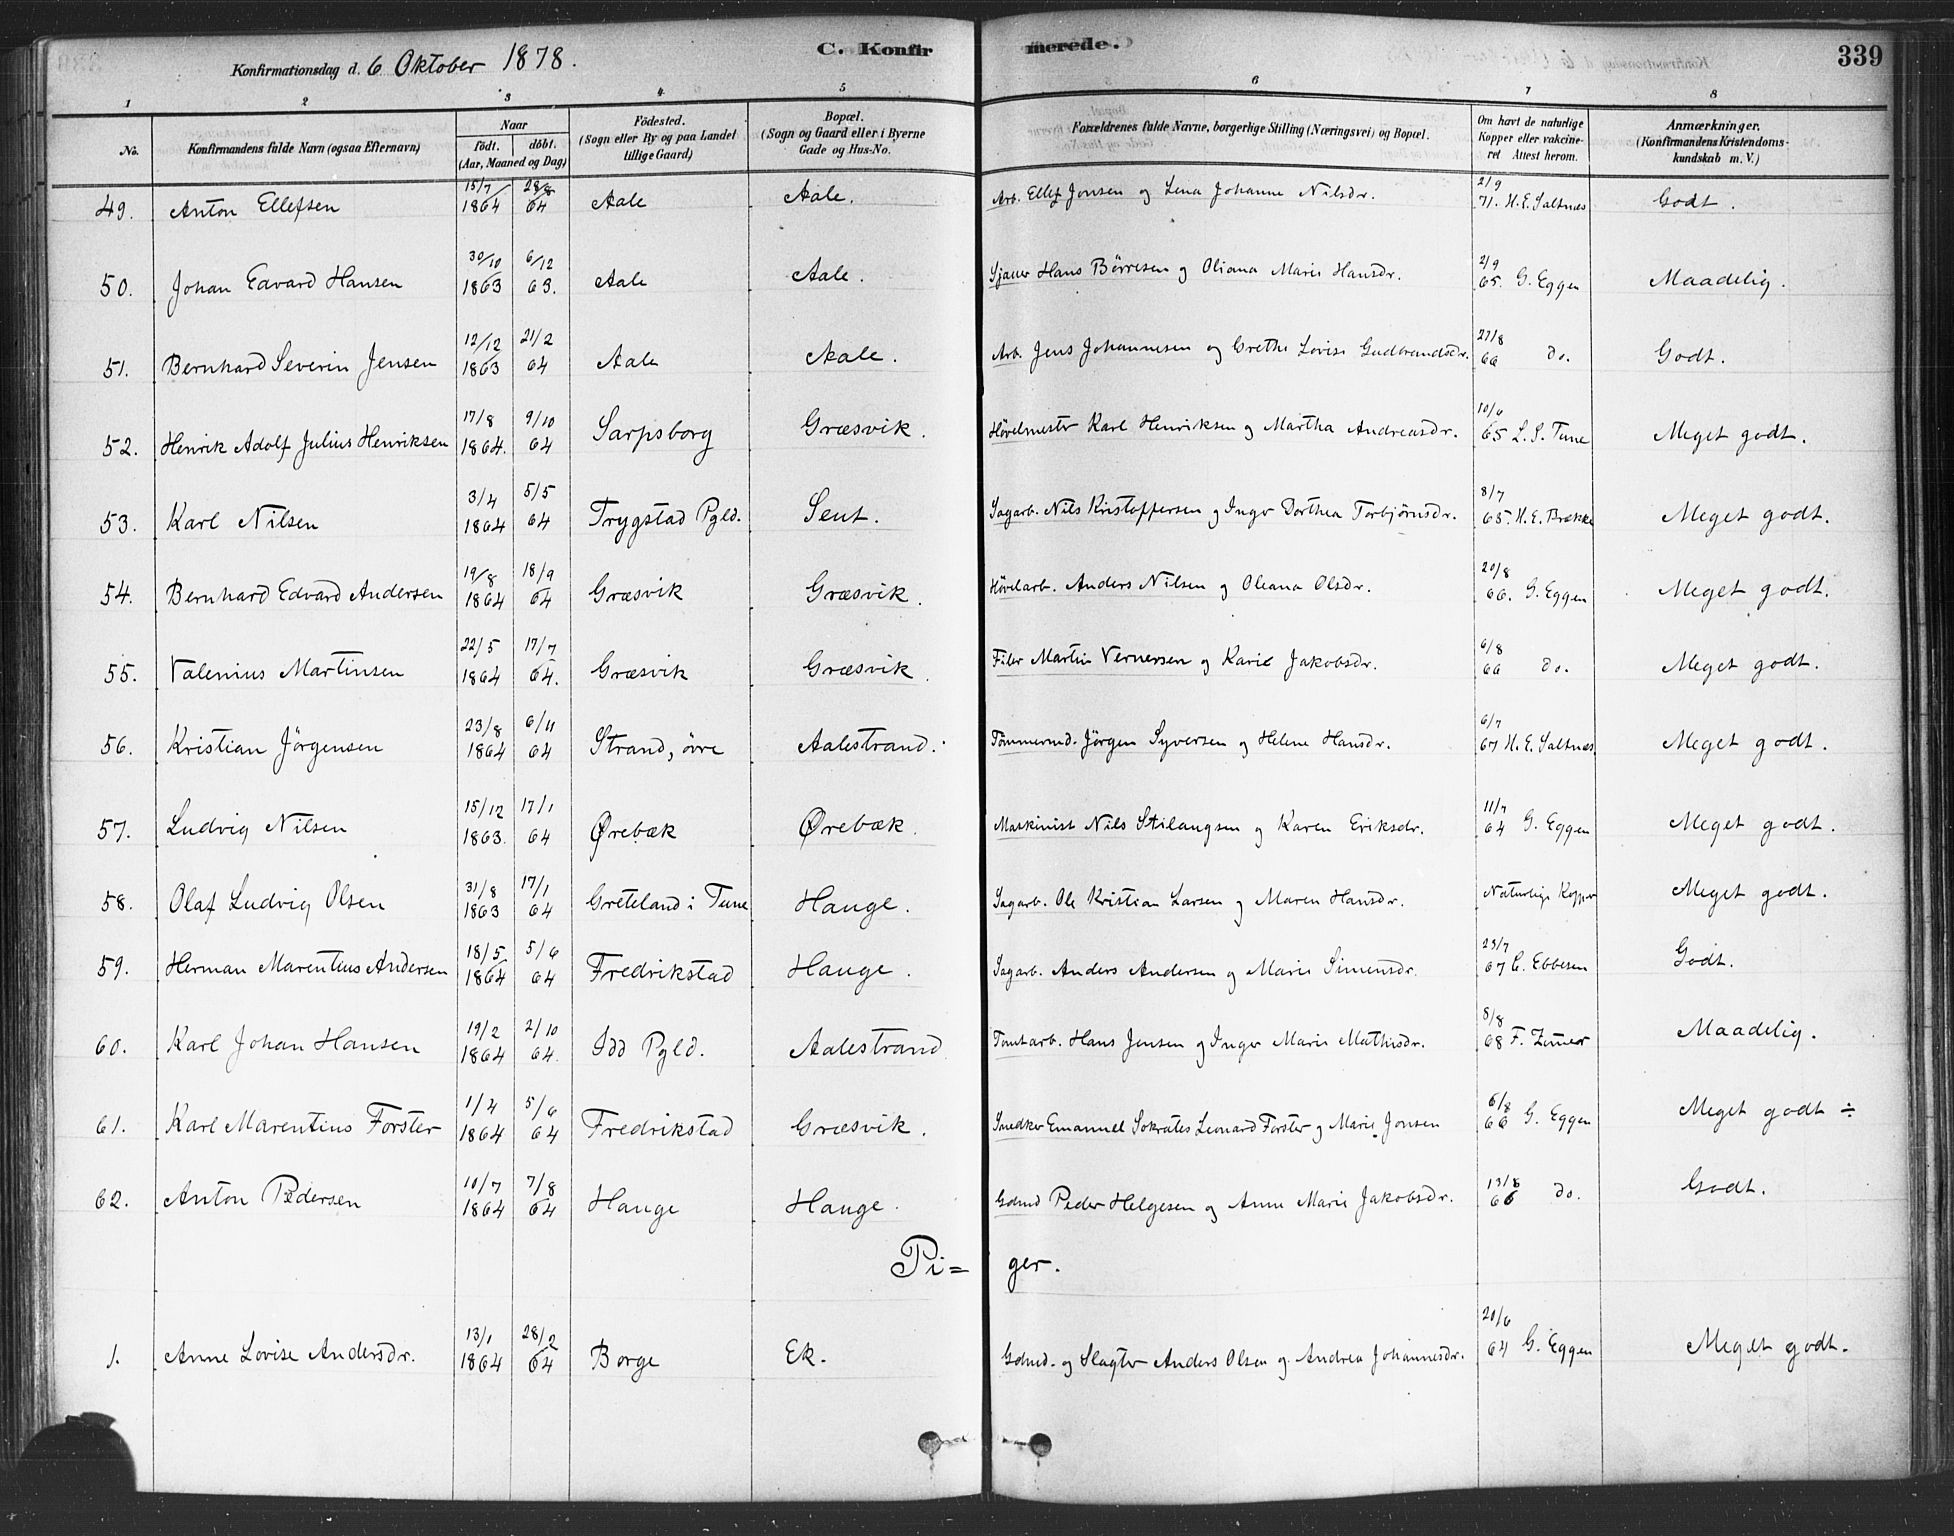 Konfirmationsdag d. 6 Oktober 1878.
C. Konfirmerede.
339
1 2 3 4 5 6 7 8
No. Konfirmandens fulde Navn (ogsaa Efternavn) Naar födt. döbt. (Aar, Maaned og Dag) Födested. (Sogn eller By og paa Landet tillige Gaard) Bopæl. (Sogn og Gaard eller i Byerne Gade og Hus-No. Forældrenes fulde Navne, borgerlige Stilling (Næringsvei) og Bopæl. Om havt de naturlige Kopper eller vakcineret Attest herom. Anmærkninger. (Konfirmandens Kristendomskundskab m. V.)
49. Anton Ellefsen 15/7 1864 28/8 64 Aale Aale. Arb. Ellef Jonsen og Lena Johanne Nilsdr. 2/9 71. H. E. Saltnes Godt.
50. Johan Edvard Hansen 30/10 1863 6/12 63. Aale Aale. Sjauer Hans Börresen og Oliana Marie Hansdr. 2/9 65. G. Eggen Maadelig.
51. Bernhard Severin Jensen 12/12 1863 21/2 64 Aale Aale. Arb. Jens Johannesen og Grethe Lovise Gudbrandsdr. 27/8 66 do. Godt.
52. Henrik Adolf Julius Henriksen 17/8 1864. 9/10 64 Sarpsborg Græsvik. Hövelmester Karl Henriksen og Martha Andreasdr. 10/6 65 L. S. Tune Meget godt.
53. Karl Nilsen 3/4 1864 5/5 64 Trygstad Pgld. Seut. Sagarb. Nils Kristoffersen og Inger Dorthea Torbjørnsdr. 8/7 65. H. E. Brække Meget godt.
54. Bernhard Edvard Andersen 19/8 1864 18/9 64 Græsvik Græsvik. Hövelarb. Anders Nilsen og Oleana Olsdr. 20/8 66. G. Eggen Meget godt.
55. Valenius Martinsen 22/5 1864 17/7 64. Græsvik Græsvik. Filer Martin Vernersen og Karie Jakobsdr. 6/8 66 do. Meget godt.
56. Kristian Jörgensen 23/8 1864 6/11 64 Strand, övre Aalestrand. Tömmermd. Jörgen Syversen og Helene Hansdr. 6/7 67 H. E. Saltnes Meget godt.
57. Ludvig Nilsen 15/12 1863. 17/1 64 Ørebæk Ørebæk. Maskinist Nils Stilaugsen og Karen Eriksdr. 11/7 64 G. Eggen Meget godt.
58. Olaf Ludvig Olsen 31/8 1863 17/1 64 Greteland i Tune Hauge. Sagarb. Ole Kristian Larsen og Maren Hansdr. Naturlige Kopper Meget godt.
59. Herman Marentius Andersen 18/5 1864 5/6 64 Fredrikstad Hauge. Sagarb. Anders Andersen og Marie Simensdr. 23/7 67 C. Ebbesen Godt.
60. Karl Johan Hansen 19/2 1864 2/10 64. Idd Pgld. Aalestrand Tomtarb. Hans Jensen og Inger Marie Mathisdr. 8/8 68 F. Maadelig.
61. Karl Marentius Forster 1/4 1864 5/6 64 Fredrikstad Græsvik. Snedker Emanuel Sokrates Leonard Forster og Marie Jonsen 6/8 66 G. Eggen Meget godt ÷
62. Anton Pedersen 10/7 1864 7/8 64 Hauge Hauge. Gdmd Peder Helgesen og Anne Marie Jakobsdr. 13/8 66 do. Godt.
Pi= ger.
1. Anne Lovise Andersdr. 13/1 1864 28/2 64 Borge Ek. Gdmd. og Slagter Anders Olsen og Andrea Johannesdr. 20/6 64 G. Eggen Meget godt.